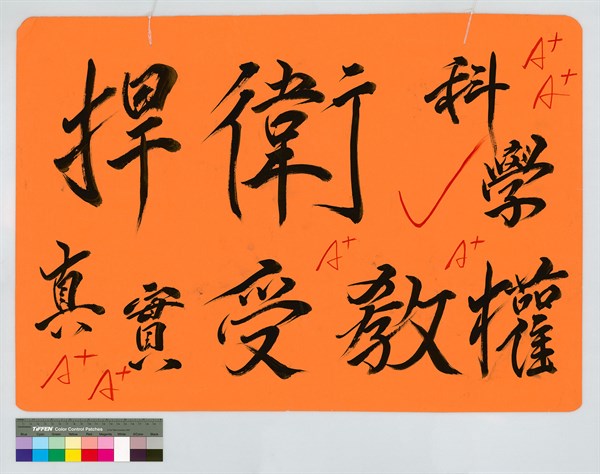 捍衛科學
A+
A+
真實受教權
A+
A+
A+
A+
TIFFEN Color Control Patches